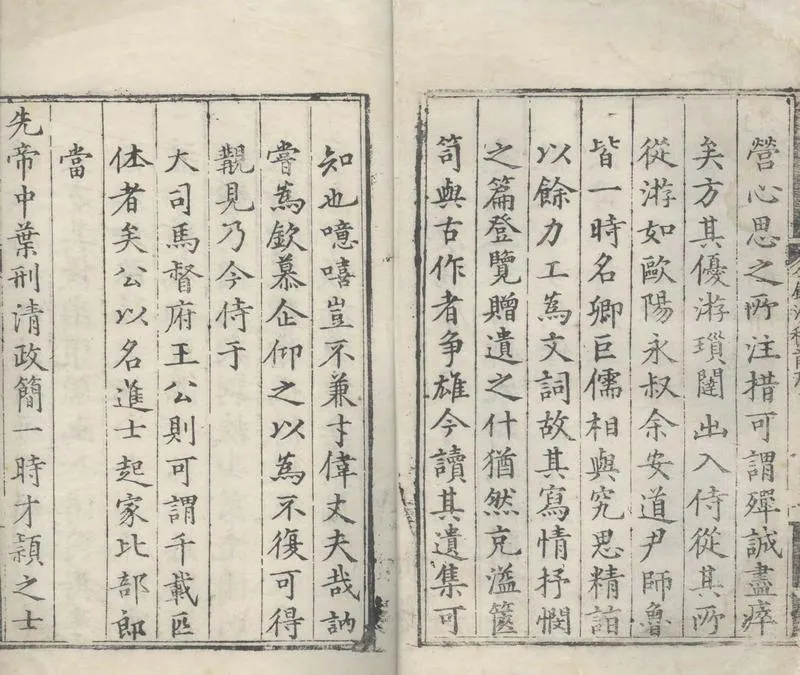 營心思之所注措可謂殫誠盡瘁
矣方其優游瑣闥出入侍從其所
從游如歐陽永叔余安道尹師魯
皆一時名卿巨儒相與究思精詣
以餘力工為文詞故其寫情抒憫
之篇登覽贈遺之什猶然充溢篋
笥與古作者爭雄今讀其遺集可
知也噫嘻豈不兼才偉丈夫哉訥
嘗為欽慕企仰之以為不復可得
覯見乃今侍于
大司馬督府王公則可謂千載匹
休者矣公以名進士起家比部郎
當
先帝中葉刑清政簡一時才穎之士